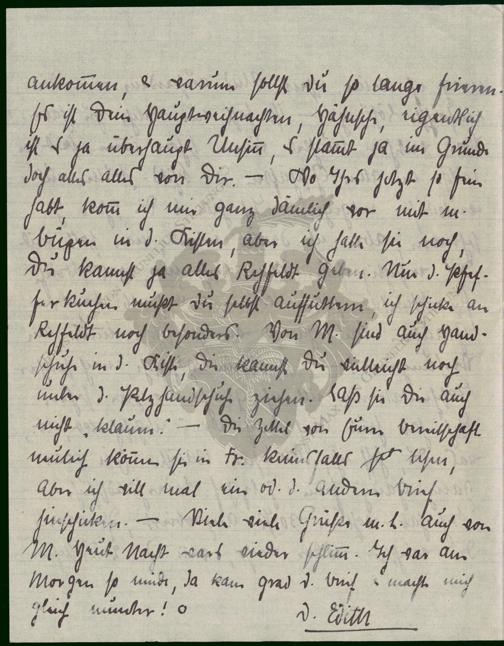 ankommen, & warum sollst Du so lange frieren.
Es ist Dein Hauptweihnachten, Hähnsche, eigentlich
ist es ja überhaupt Unsinn, es stammt ja im Grunde
doch alles alles von Dir. — Wo Ihrs jetzt so fein
habt, komm ich mir ganz dämlich vor mit m.
in d. Kissen, aber ich hatte sie noch,
Du kannst ja alles Rehfeldt geben. Nur d. Pfef-
ferkuchen mußt Du selbst auffuttern, ich schicke an
Rehfeldt noch besonders. Von M. sind auch Hand-
schuhe in d. Kiste, die kannst Du vielleicht noch
unter d. Pelzhandschuh ziehen. Laß sie Dir auch
nicht „klaum." — Die Zettel von Eurer Bereitschaft
neulich können sie in Fr. keinesfalls lesen,
aber ich will mal ein od. d. andern Brief
hinschicken. — Viele viele Grüße m. L. auch von
M. Heut Nacht wars wieder schlimm. Ich war am
Morgen so müde, da kam grad d. Brief & machte mich
gleich munter! o
D. Edith